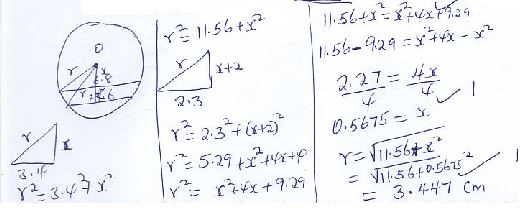 O
r
x
r
x
3.4
r² = 3.4² x²
r² = 11.56 + x²
r
x+2
2.3
r² = 2.3² + (x+2)²
r² = 5.29 + x² + 4x + 4
r² = x² + 4x + 9.29
11.56 + x² = x² + 4x + 9.29
11.56 - 9.29 = x² + 4x - x²
2.27 = 4x
4 4
0.5675 = x ✓ 1
r = √11.56 + x²
= √11.56 + 0.5675² ✓ 1
= 3.447 cm